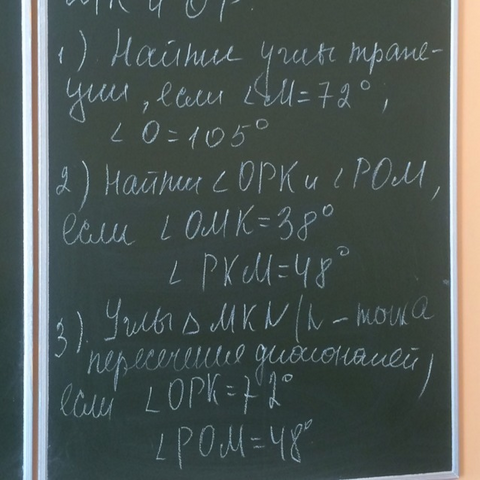 МК и ОР.
1) Найти углы трапе-
ции, если ∠M=72°,
∠O=105°
2) Найти ∠OPK и ∠POM,
если ∠OMK=38°
∠PKM=48°
3) Углы △MKN (N – точка
пересечения диагоналей)
если ∠OPK=72°
∠POM=48°